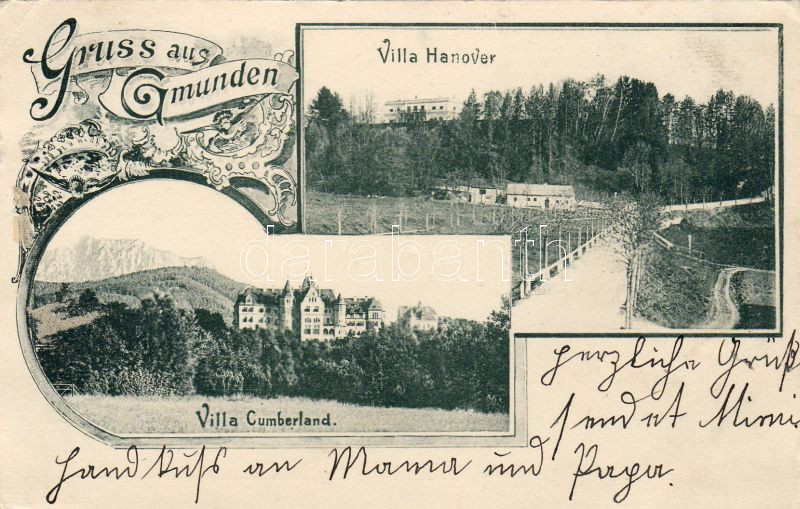 Gruss aus
Gmunden
Villa Hanover
darabanth
Villa Cumberland.
herzliche Grüß
sendet Mimi
Handkuß an Mama und Papa.